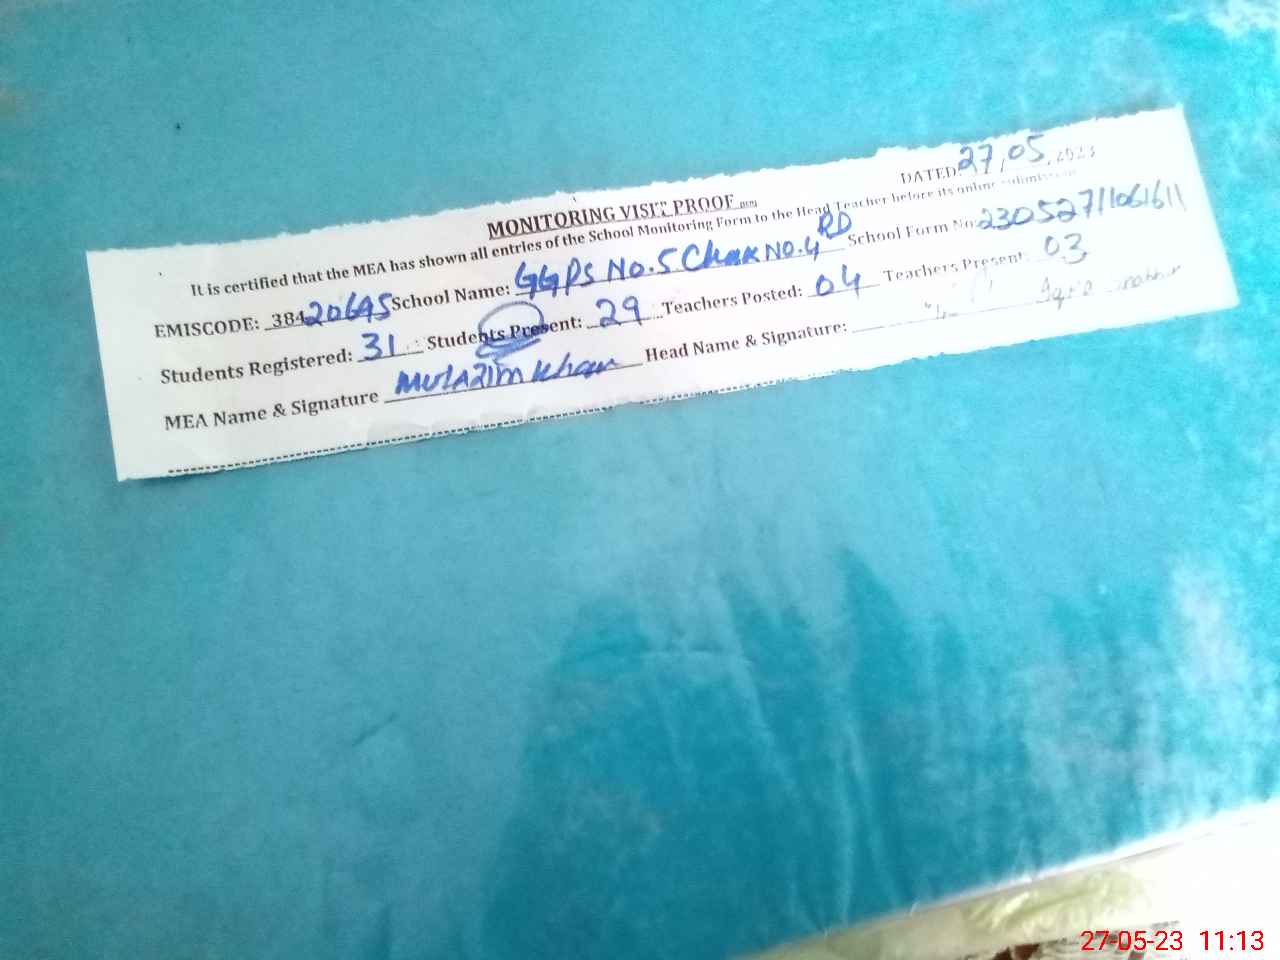 MONITORING VISIT PROOF
DATED: 27, 05, 2023
It is certified that the MEA has shown all entries of the School Monitoring Form to the Head Teacher before its online submission
EMISCODE: 38420695 School Name: GGPS No.5 Chak No.4 RD School Form No: 23052711061611
Students Registered: 31 Students Present: 29 Teachers Posted: 04 Teachers Present: 03
MEA Name & Signature Mulazim Khan Head Name & Signature:
27-05-23 11:13